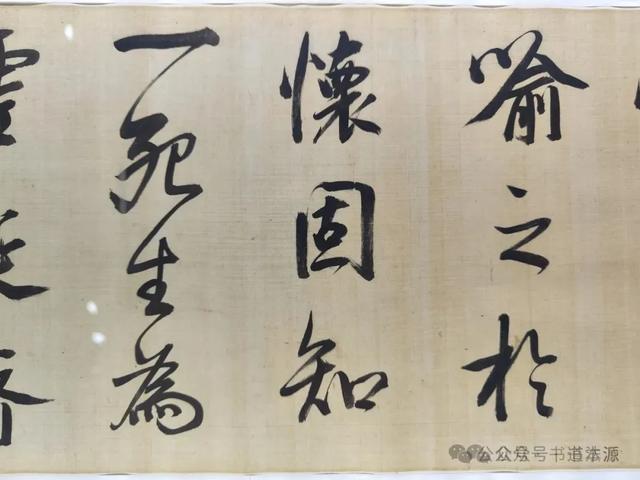 喻之於
懷固知
一死生為
虛誕齊
公众号 书道法源